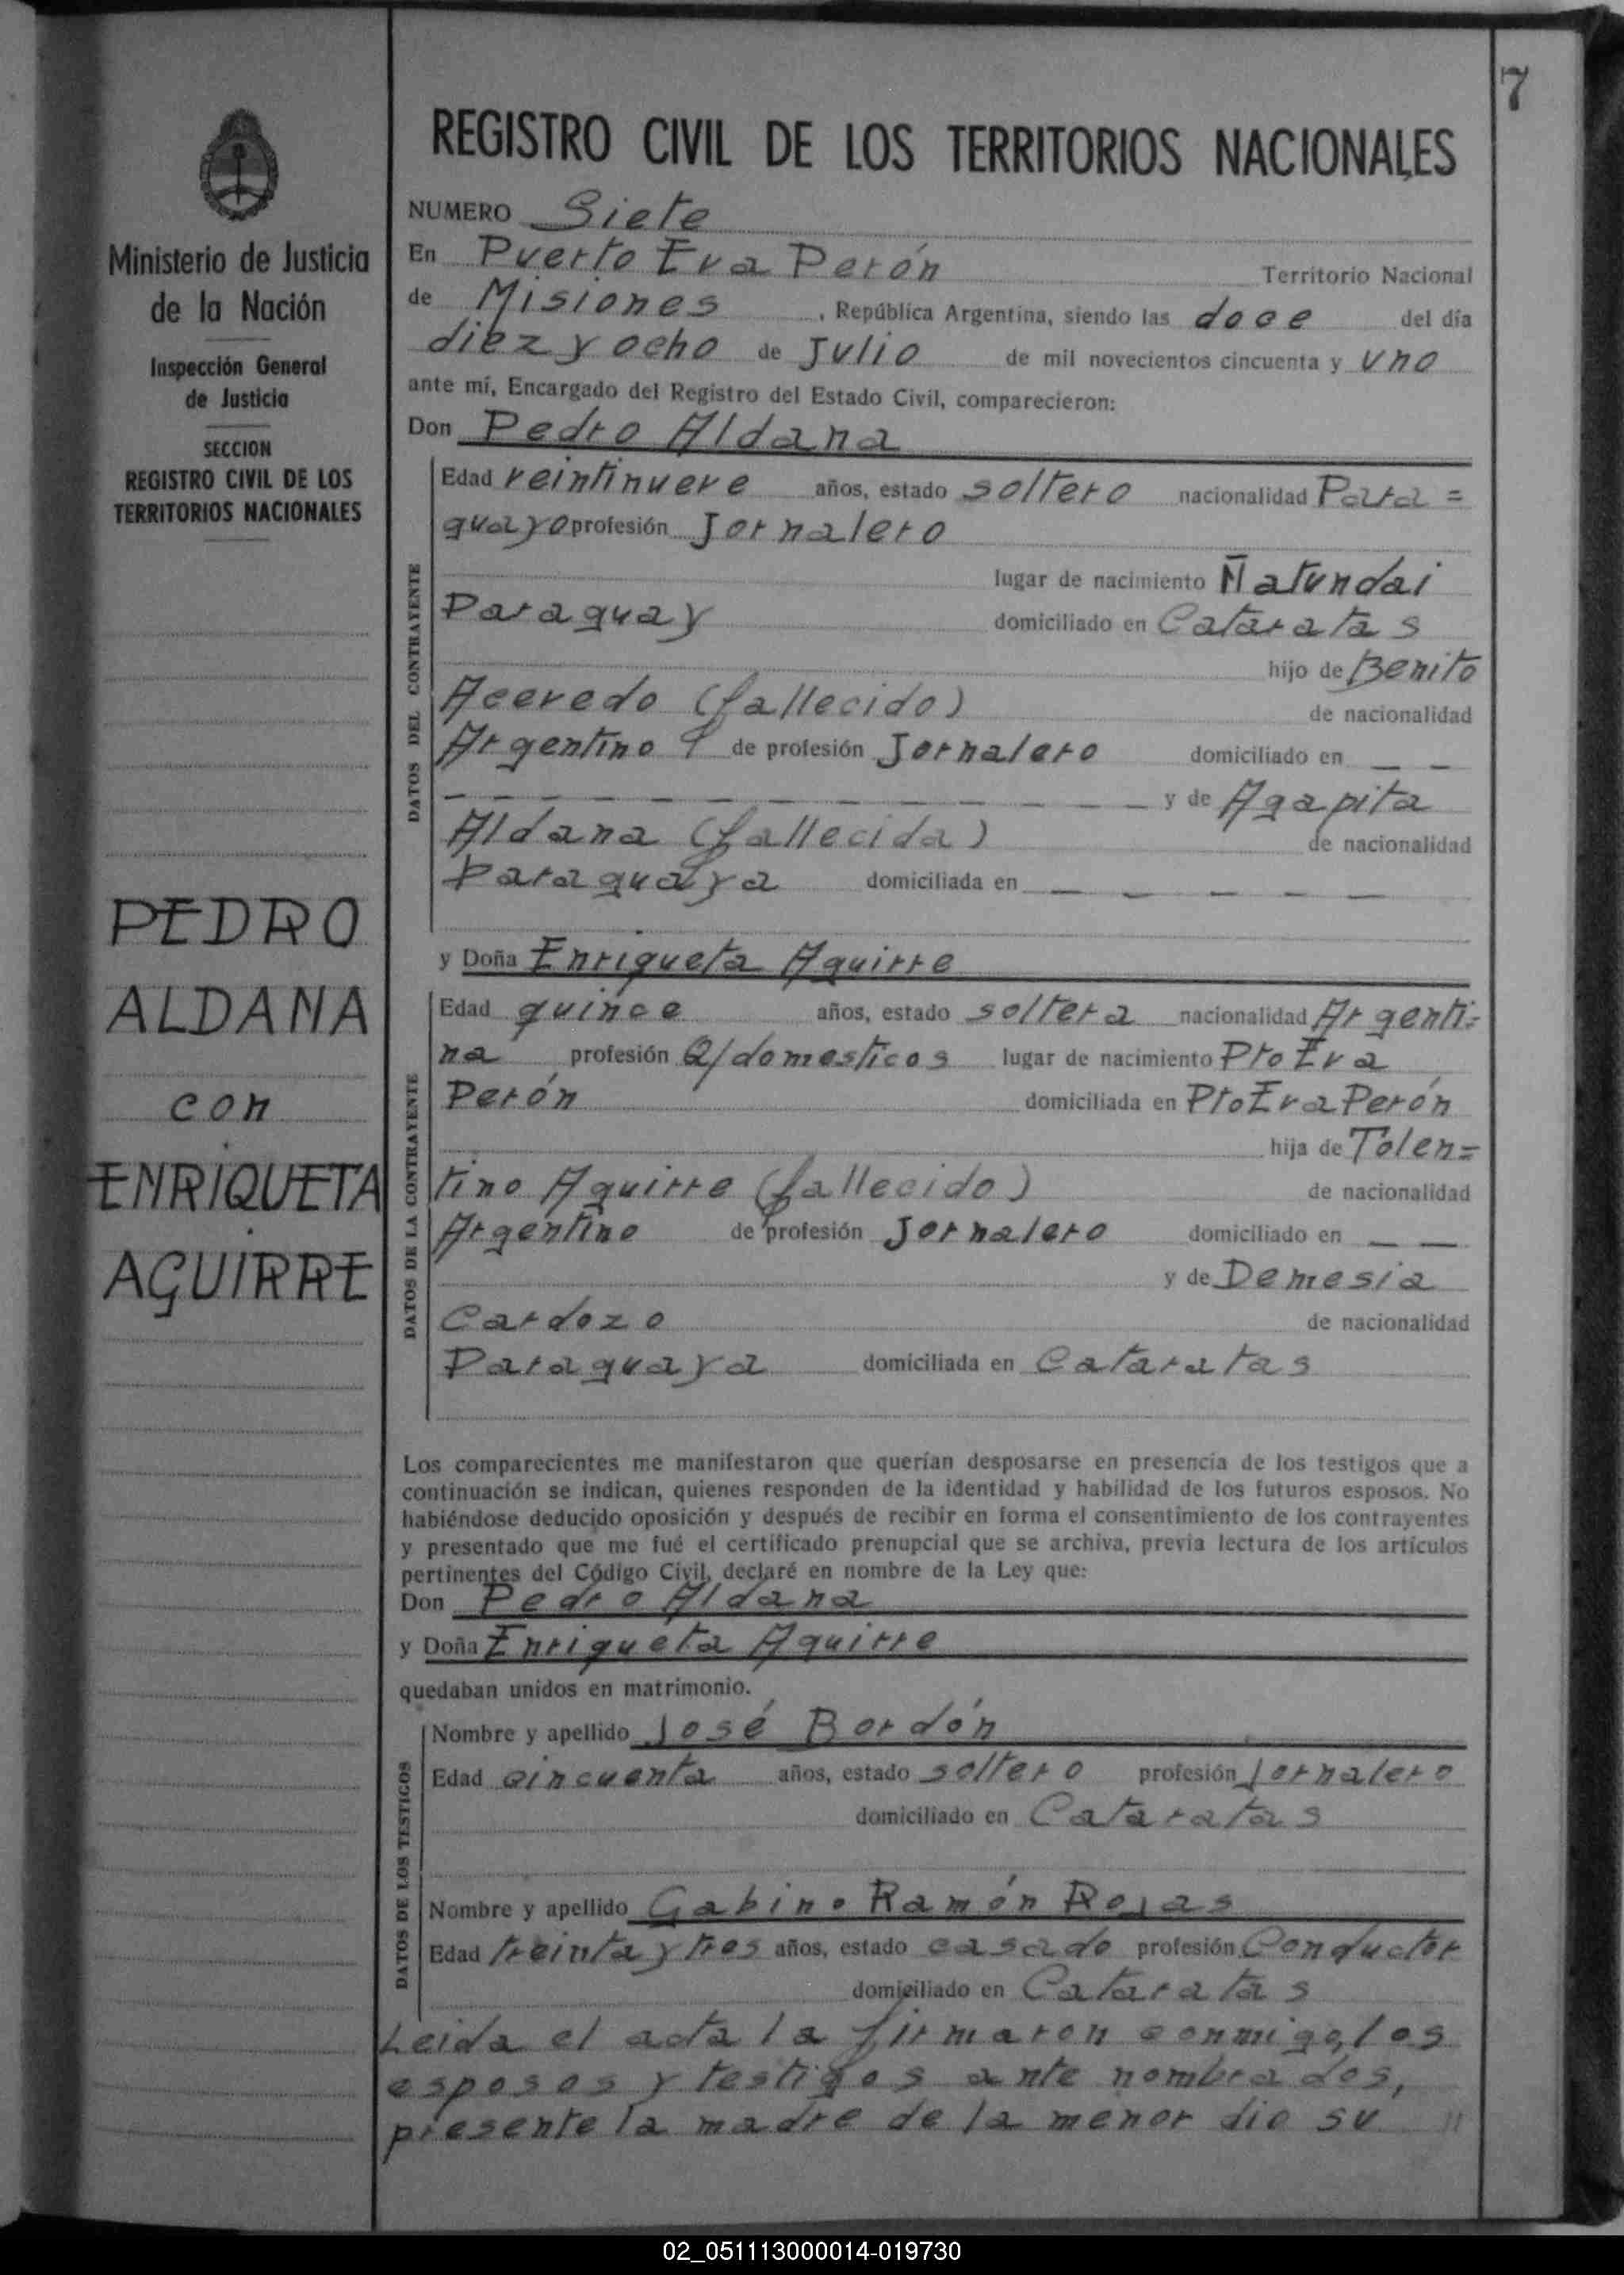 7
REGISTRO CIVIL DE LOS TERRITORIOS NACIONALES
Ministerio de Justicia
de la Nación
Inspección General
de Justicia
SECCION
REGISTRO CIVIL DE LOS
TERRITORIOS NACIONALES
PEDRO
ALDANA
con
ENRIQUETA
AGUIRRE
NUMERO Siete
En Puerto Eva Perón Territorio Nacional
de Misiones, República Argentina, siendo las doce del día
diez y ocho de Julio de mil novecientos cincuenta y uno
ante mí, Encargado del Registro del Estado Civil, comparecieron:
Don Pedro Aldana
DATOS DEL CONTRAYENTE
Edad veintinueve años, estado soltero nacionalidad Para=
guayo profesión Jornalero
lugar de nacimiento Ñatundai
Paraguay domiciliado en Cataratas
hijo de Benito
Acevedo (fallecido) de nacionalidad
Argentino de profesión Jornalero domiciliado en _ _
_ _ _ _ _ _ _ _ _ _ y de Agapita
Aldana (fallecida) de nacionalidad
Paraguaya domiciliada en _ _ _ _ _
y Doña Enriqueta Aguirre
DATOS DE LA CONTRAYENTE
Edad quince años, estado soltera nacionalidad Argenti=
na profesión Q/domesticos lugar de nacimiento Pto Eva
Perón domiciliada en Pto Eva Perón
hija de Tolen=
tino Aguirre (fallecido) de nacionalidad
Argentino de profesión Jornalero domiciliado en _ _
y de Demesia
Cardozo de nacionalidad
Paraguaya domiciliada en Cataratas
Los comparecientes me manifestaron que querían desposarse en presencia de los testigos que a
continuación se indican, quienes responden de la identidad y habilidad de los futuros esposos. No
habiéndose deducido oposición y después de recibir en forma el consentimiento de los contrayentes
y presentado que me fué el certificado prenupcial que se archiva, previa lectura de los artículos
pertinentes del Código Civil, declaré en nombre de la Ley que:
Don Pedro Aldana
y Doña Enriqueta Aguirre
quedaban unidos en matrimonio.
DATOS DE LOS TESTIGOS
Nombre y apellido José Bordón
Edad cincuenta años, estado soltero profesión Jornalero
domiciliado en Cataratas
Nombre y apellido Gabino Ramón Rojas
Edad treinta y tres años, estado casado profesión Conductor
domiciliado en Cataratas
Leida el acta la firmaron conmigo, los
esposos y testigos ante nombrados,
presente la madre de la menor dio su //
02_051113000014-019730